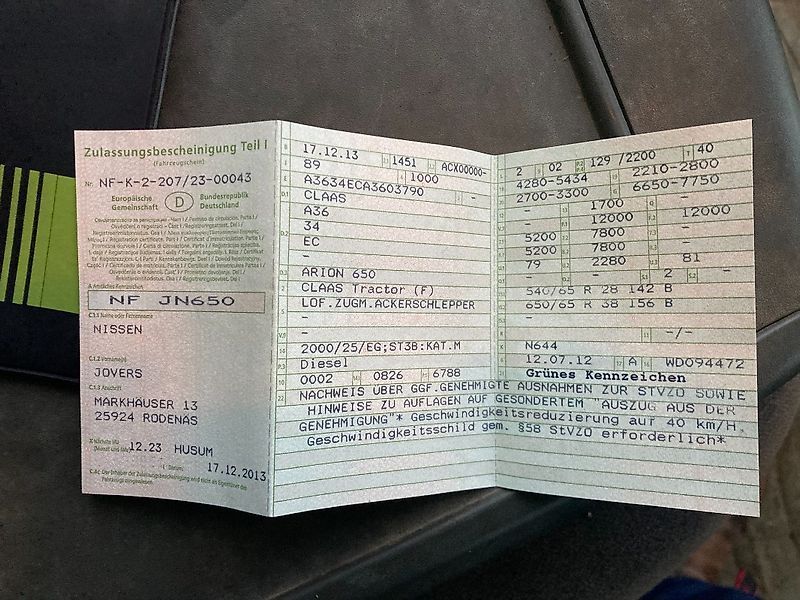 Zulassungsbescheinigung Teil I
(Fahrzeugschein)
Nr. NF-K-2-207/23-00043
Europäische Gemeinschaft
D
Bundesrepublik Deutschland
A Amtliches Kennzeichen
NF JN650
C.1.1 Name oder Firmenname
NISSEN
C.1.2 Vorname(n)
JOVERS
C.1.3 Anschrift
MARKHÄUSER 13
25924 RODENÄS
12.23 HUSUM
Datum:
17.12.2013
C.4c Der Inhaber der Zulassungsbescheinigung wird nicht als Eigentümer des
Fahrzeugs ausgewiesen.
B 17.12.13 1451 ACX00000-
89 1000
A3634ECA3603790 -
CLAAS
A36
34
EC
-
ARION 650
CLAAS Tractor (F)
LOF.ZUGM.ACKERSCHLEPPER
-
-
2000/25/EG;ST3B:KAT.M
Diesel
0002 0826 6788
2 02 129 /2200 40
4280-5434 2210-2800
2700-3300 6650-7750
- 1700 -
- 12000 12000
5200 7800 -
5200 7800 -
79 2280 81
- - 2 -
540/65 R 28 142 B
650/65 R 38 156 B
-
- -/-
N644
12.07.12 A WD094472
Grünes Kennzeichen
NACHWEIS ÜBER GGF.GENEHMIGTE AUSNAHMEN ZUR STVZO SOWIE
HINWEISE ZU AUFLAGEN AUF GESONDERTEM "AUSZUG AUS DER
GENEHMIGUNG"* Geschwindigkeitsreduzierung auf 40 km/H.
Geschwindigkeitsschild gem. §58 StVZO erforderlich*